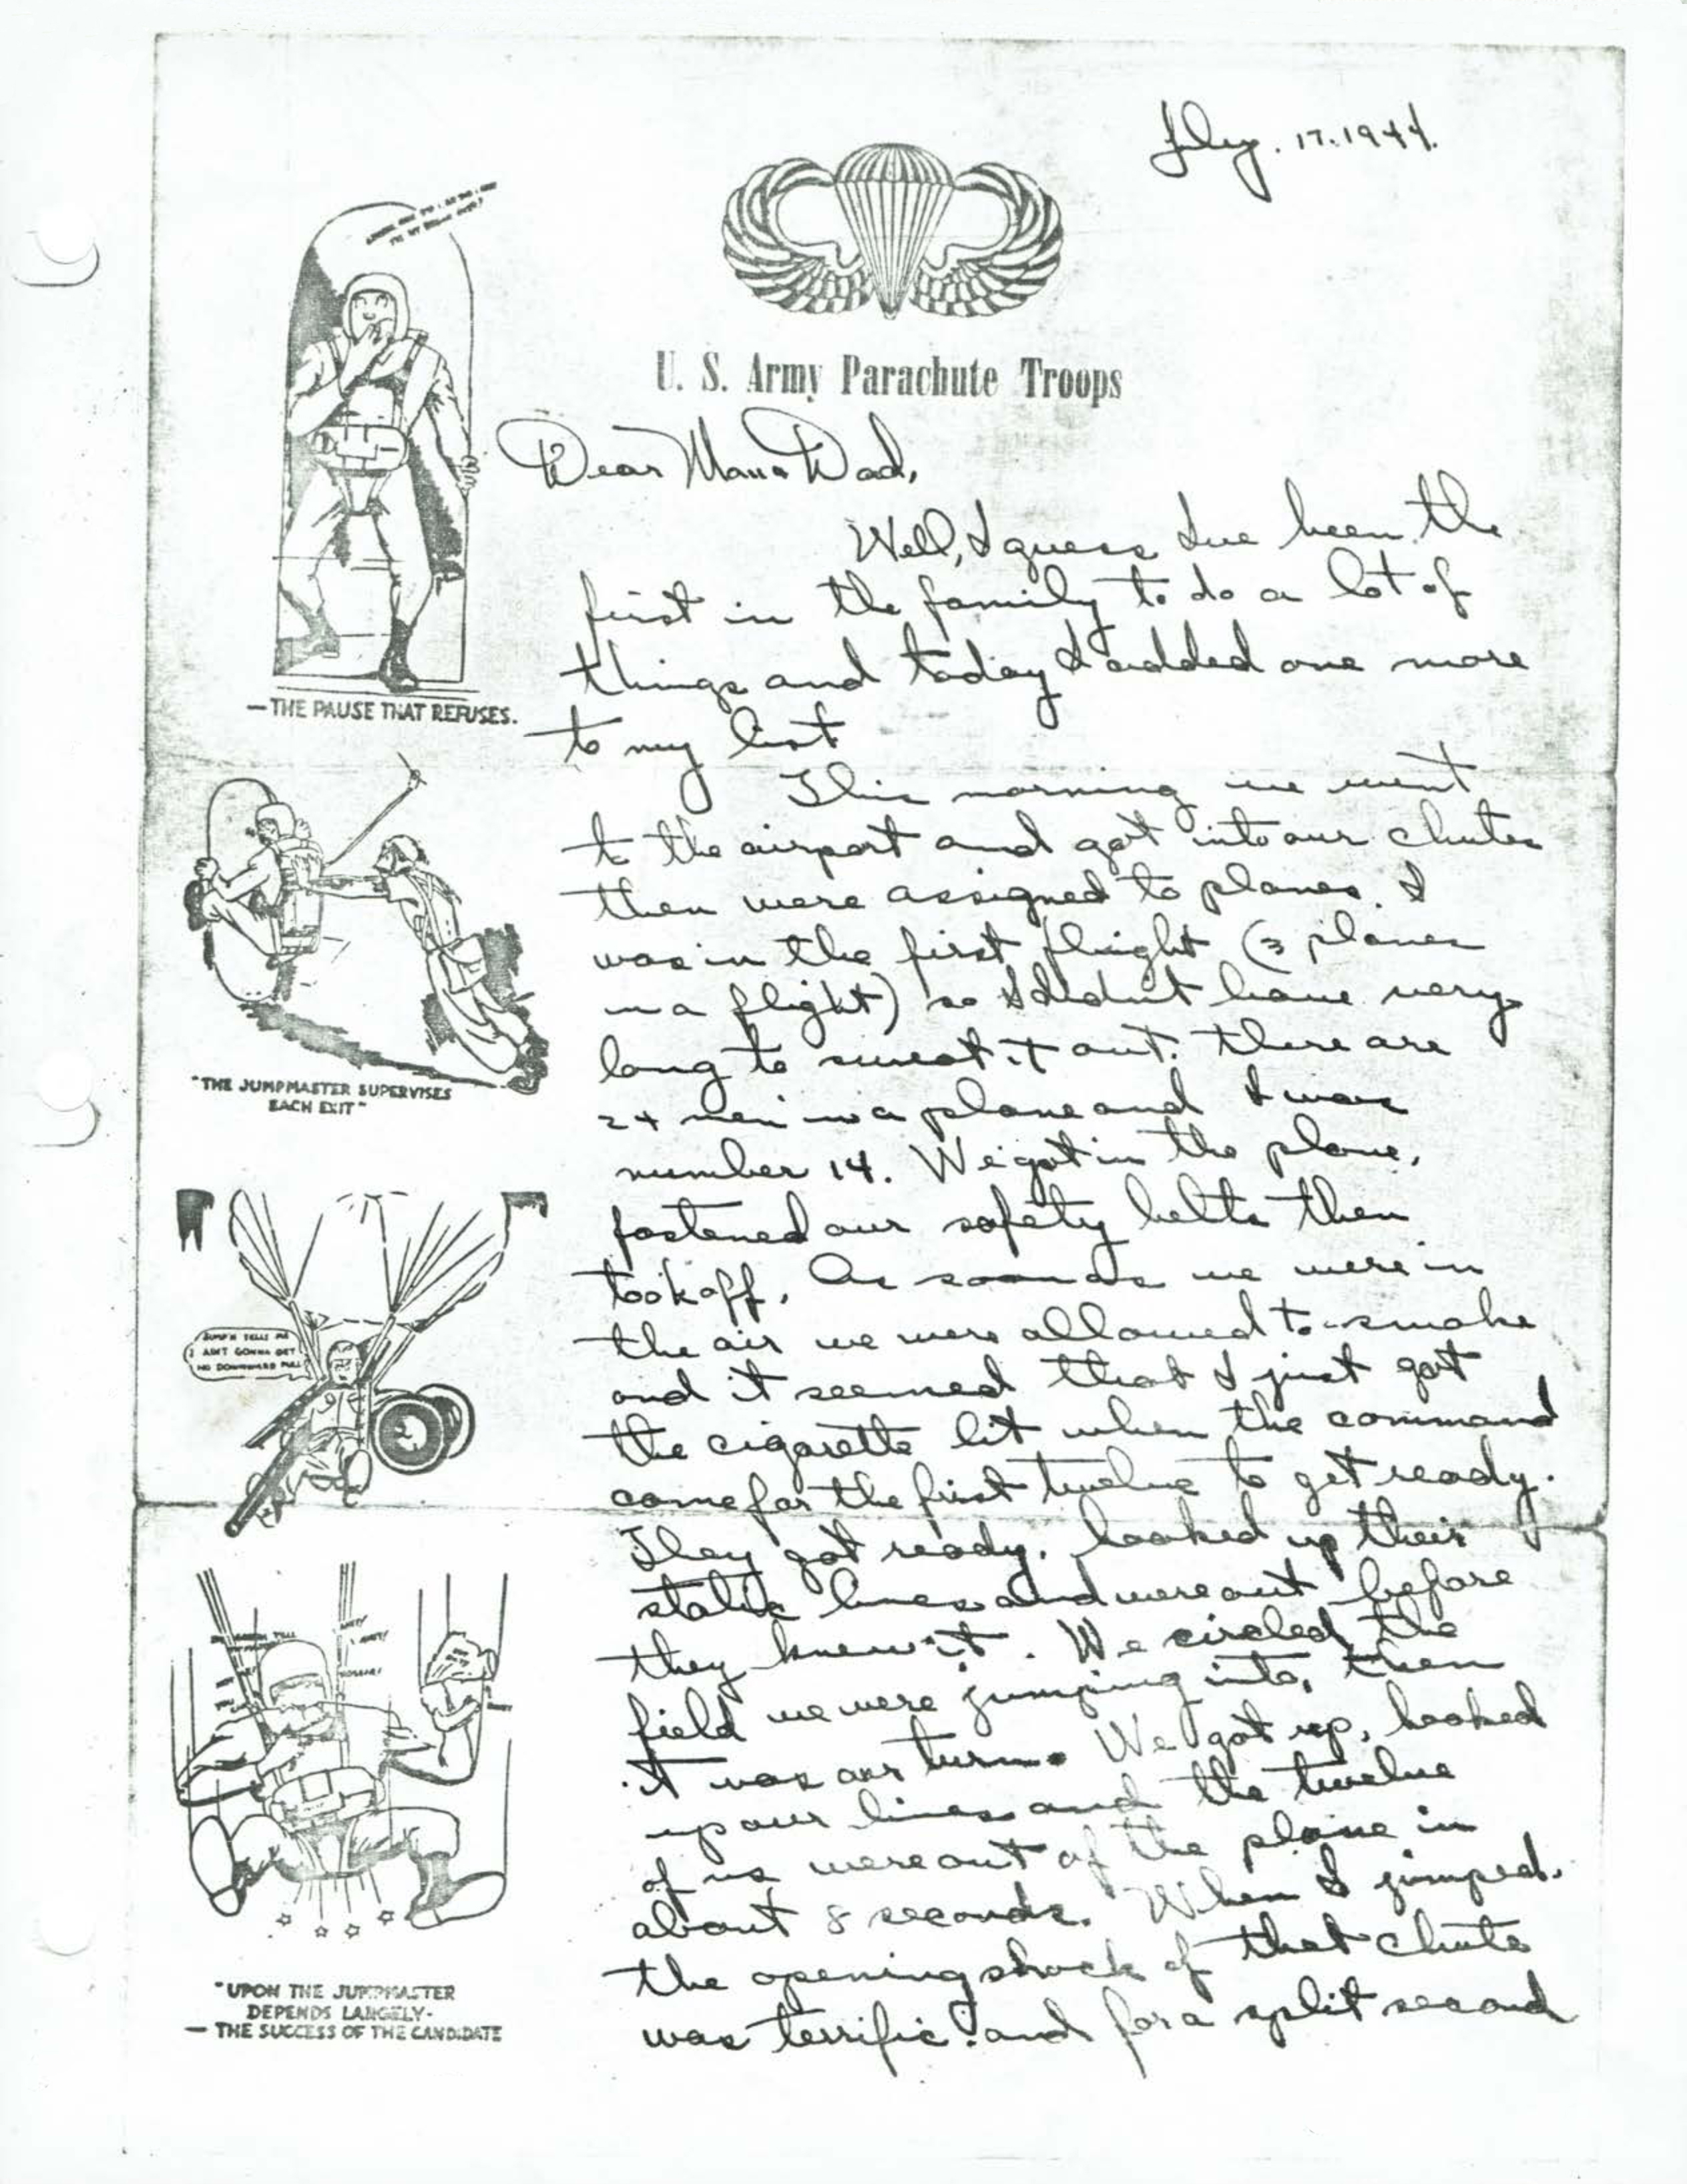 July. 17. 1944.
U. S. Army Parachute Troops
Dear Mom & Dad,
Well, I guess I've been the
first in the family to do a lot of
things and today I added one more
to my list
This morning we went
to the airport and got into our chutes
then were assigned to planes. I
was in the first flight (3 planes
in a flight) so I didn't have very
long to sweat it out. There are
24 men in a plane and I was
number 14. We got in the plane,
fastened our safety belts then
took off. As soon as we were in
the air we were allowed to smoke
and it seemed that I just got
the cigarette lit when the command
came for the first twelve to get ready.
They got ready, hooked up their
static lines and were out before
they knew it. We circled the
field we were jumping into, then
it was our turn. We got up, hooked
up our lines and the twelve
of us were out of the plane in
about 8 seconds. When I jumped.
the opening shock of that chute
was terrific and for a split second
— THE PAUSE THAT REFUSES.
"THE JUMPMASTER SUPERVISES
EACH EXIT"
SUMP'N TELLS ME
I AIN'T GONNA GET
NO DOWNWARD PULL
"UPON THE JUMPMASTER
DEPENDS LARGELY-
— THE SUCCESS OF THE CANDIDATE